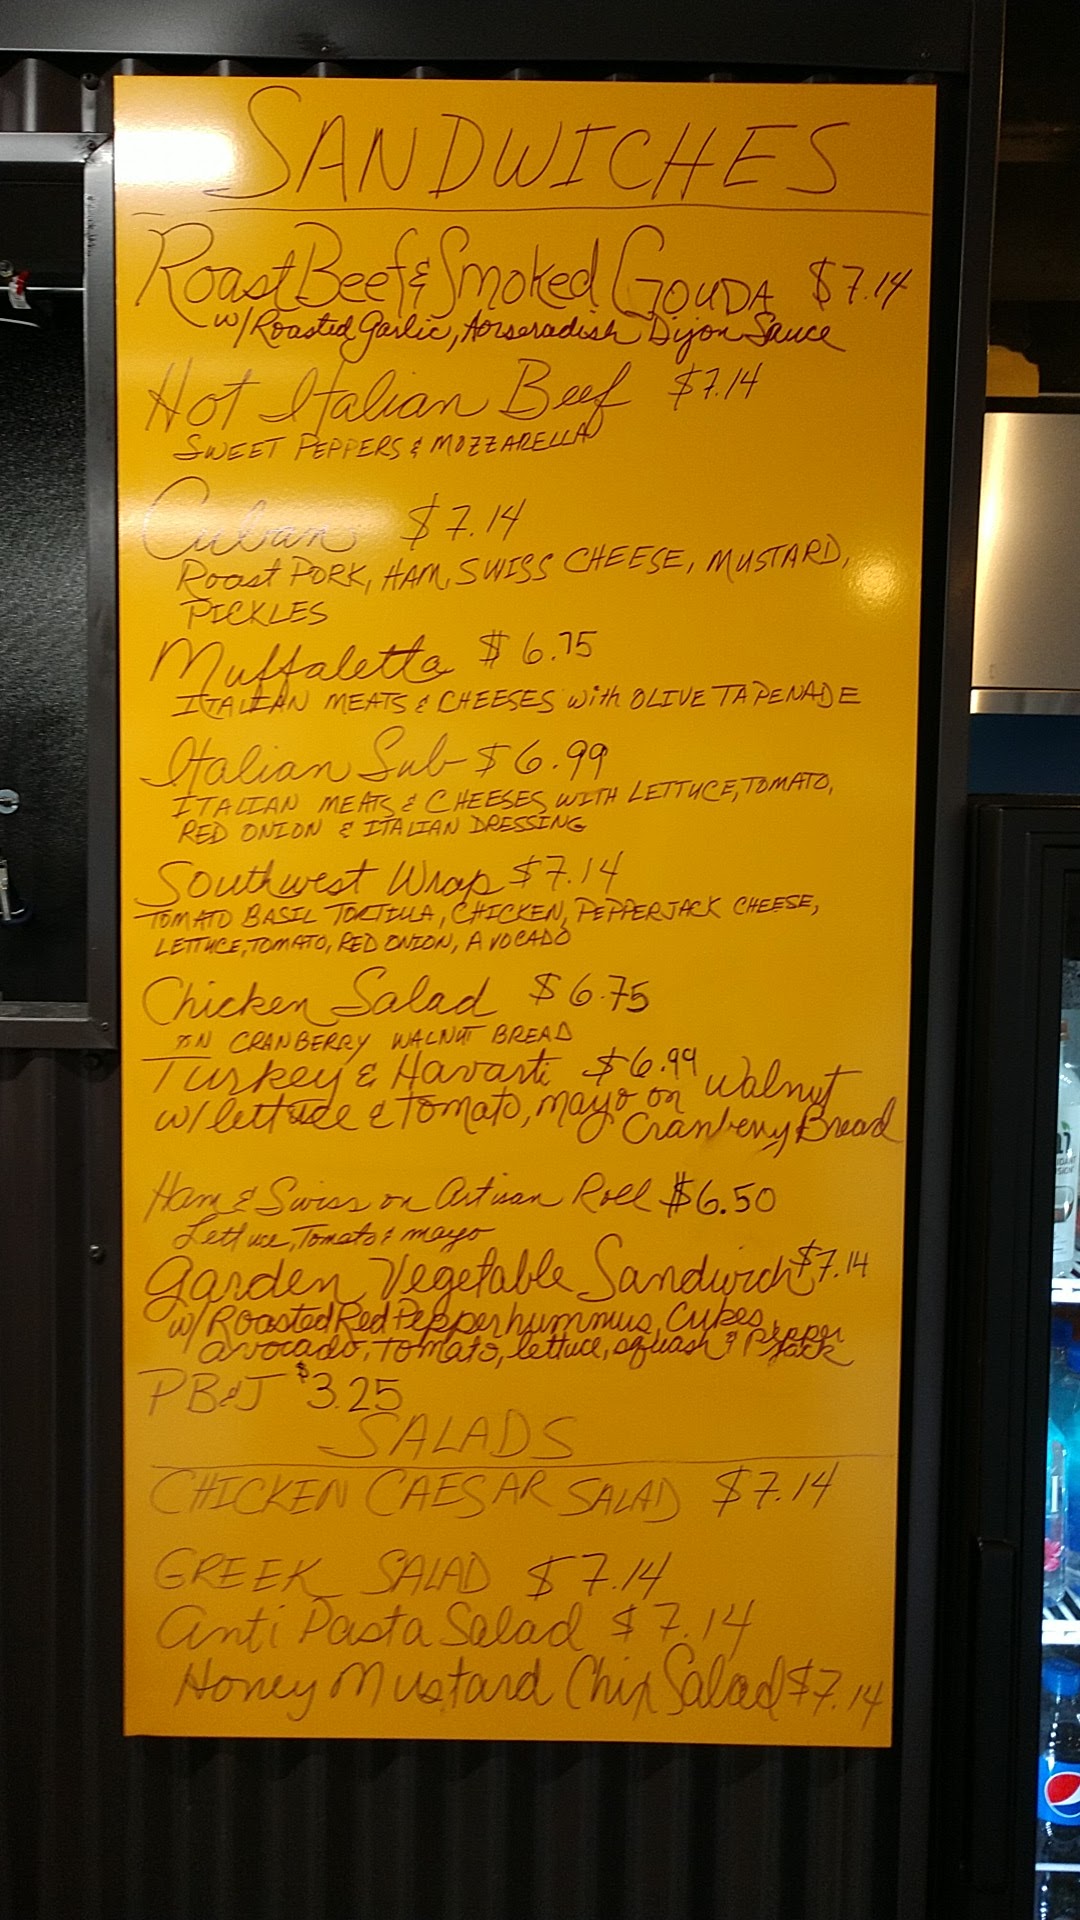 SANDWICHES
Roast Beef & Smoked Gouda $7.14
w/Roasted Garlic, Horseradish Dijon Sauce
Hot Italian Beef $7.14
SWEET PEPPERS & MOZZARELLA
Cuban $7.14
Roast PORK, HAM, SWISS CHEESE, MUSTARD,
PICKLES
Muffaletta $6.75
ITALIAN MEATS & CHEESES with OLIVE TAPENADE
Italian Sub $6.99
ITALIAN MEATS & CHEESES WITH LETTUCE, TOMATO,
RED ONION & ITALIAN DRESSING
Southwest Wrap $7.14
TOMATO BASIL TORTILLA, CHICKEN, PEPPERJACK CHEESE,
LETTUCE, TOMATO, RED ONION, AVOCADO
Chicken Salad $6.75
ON CRANBERRY WALNUT BREAD
Turkey & Havarti $6.99
w/lettuce & tomato, mayo on Walnut
Cranberry Bread
Ham & Swiss on Artisan Roll $6.50
Lettuce, Tomato & mayo
Garden Vegetable Sandwich $7.14
w/Roasted Red Pepper hummus, Cukes,
avocado, tomato, lettuce, squash & Pepper
Jack
PB&J $3.25
SALADS
CHICKEN CAESAR SALAD $7.14
GREEK SALAD $7.14
Anti Pasta Salad $7.14
Honey Mustard Chix Salad $7.14